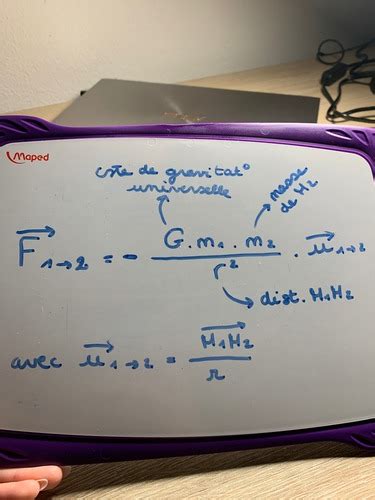 Maped
cste de gravitat°
universelle
masse
de M2
F⃗ 1→2 = - G.m1.m2 / r² . u⃗ 1→2
dist. M1M2
avec u⃗ 1→2 = M1M2⃗ / r